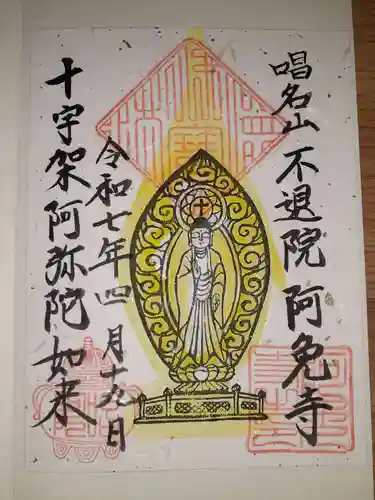 唱名山 不退院 阿免寺
令和七年四月十九日
十字架阿弥陀如来